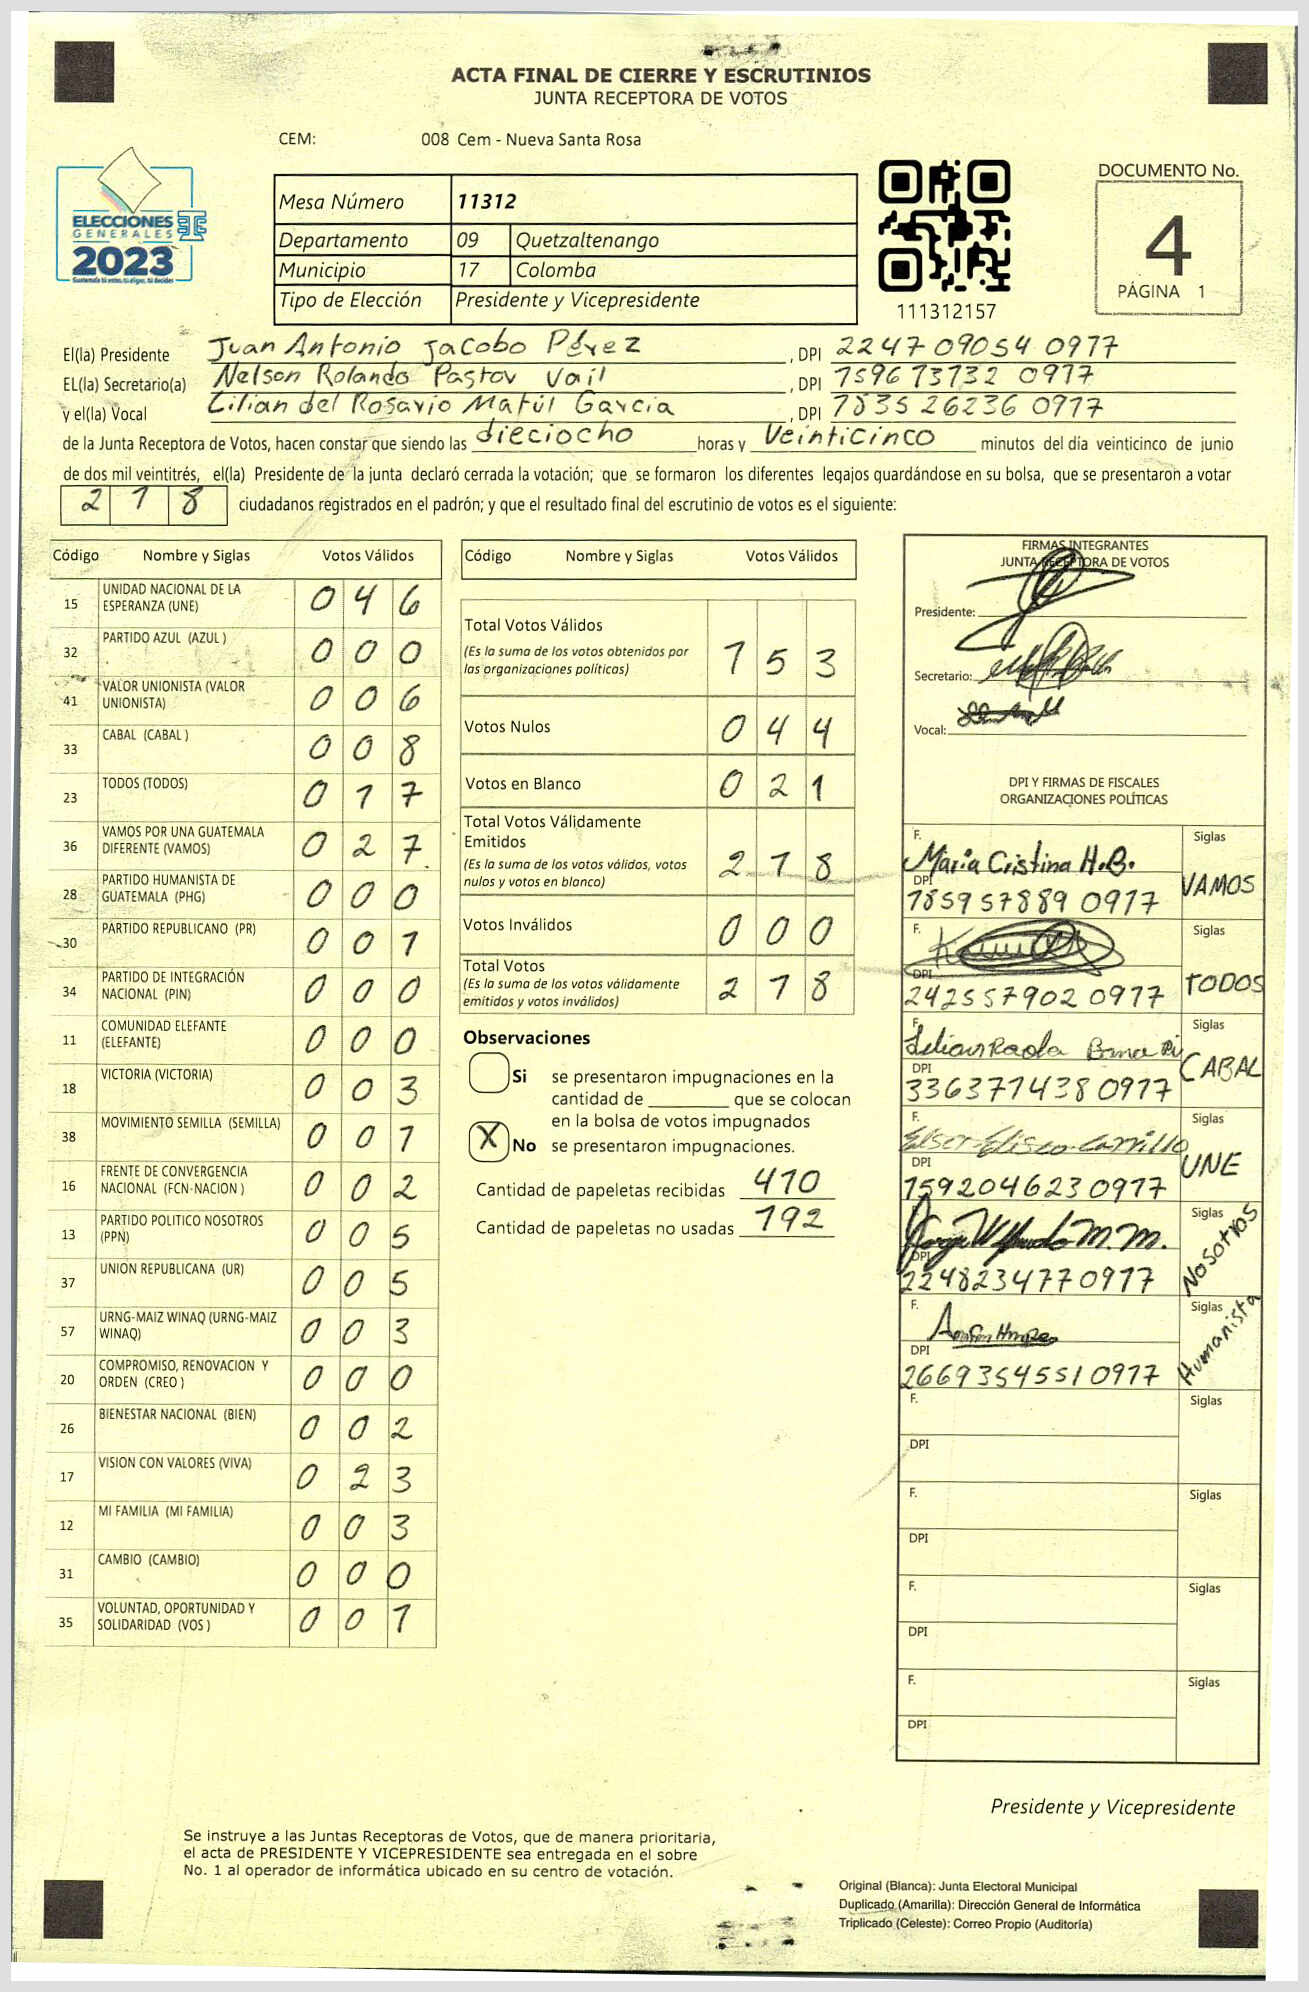 ACTA FINAL DE CIERRE Y ESCRUTINIOS
JUNTA RECEPTORA DE VOTOS
CEM: 008 Cem - Nueva Santa Rosa
ELECCIONES
GENERALES
2023
Guatemala tú votas, tú eliges, tú decides
Mesa Número 11312
Departamento 09 Quetzaltenango
Municipio 17 Colomba
Tipo de Elección Presidente y Vicepresidente
111312157
DOCUMENTO No.
4
PÁGINA 1
El(la) Presidente Juan Antonio Jacobo Pérez, DPI 2247 09054 0917
EL(la) Secretario(a) Nelson Rolando Pastor Vail, DPI 1596 73732 0917
y el(la) Vocal Lilian del Rosario Matúl García, DPI 1835 26236 0917
de la Junta Receptora de Votos, hacen constar que siendo las dieciocho horas y Veinticinco minutos del día veinticinco de junio
de dos mil veintitrés, el(la) Presidente de la junta declaró cerrada la votación; que se formaron los diferentes legajos guardándose en su bolsa, que se presentaron a votar
218 ciudadanos registrados en el padrón; y que el resultado final del escrutinio de votos es el siguiente:
Código Nombre y Siglas Votos Válidos
15 UNIDAD NACIONAL DE LA ESPERANZA (UNE) 0 4 6
32 PARTIDO AZUL (AZUL ) 0 0 0
41 VALOR UNIONISTA (VALOR UNIONISTA) 0 0 6
33 CABAL (CABAL ) 0 0 8
23 TODOS (TODOS) 0 1 7
36 VAMOS POR UNA GUATEMALA DIFERENTE (VAMOS) 0 2 7
28 PARTIDO HUMANISTA DE GUATEMALA (PHG) 0 0 0
30 PARTIDO REPUBLICANO (PR) 0 0 1
34 PARTIDO DE INTEGRACIÓN NACIONAL (PIN) 0 0 0
11 COMUNIDAD ELEFANTE (ELEFANTE) 0 0 0
18 VICTORIA (VICTORIA) 0 0 3
38 MOVIMIENTO SEMILLA (SEMILLA) 0 0 1
16 FRENTE DE CONVERGENCIA NACIONAL (FCN-NACION ) 0 0 2
13 PARTIDO POLITICO NOSOTROS (PPN) 0 0 5
37 UNIÓN REPUBLICANA (UR) 0 0 5
57 URNG-MAIZ WINAQ (URNG-MAIZ WINAQ) 0 0 3
20 COMPROMISO, RENOVACION Y ORDEN (CREO ) 0 0 0
26 BIENESTAR NACIONAL (BIEN) 0 0 2
17 VISION CON VALORES (VIVA) 0 2 3
12 MI FAMILIA (MI FAMILIA) 0 0 3
31 CAMBIO (CAMBIO) 0 0 0
35 VOLUNTAD, OPORTUNIDAD Y SOLIDARIDAD (VOS ) 0 0 1
Código Nombre y Siglas Votos Válidos
Total Votos Válidos 1 5 3
(Es la suma de los votos obtenidos por
las organizaciones políticas)
Votos Nulos 0 4 4
Votos en Blanco 0 2 1
Total Votos Válidamente
Emitidos 2 1 8
(Es la suma de los votos válidos, votos
nulos y votos en blanco)
Votos Inválidos 0 0 0
Total Votos 2 1 8
(Es la suma de los votos válidamente
emitidos y votos inválidos)
Observaciones
Si se presentaron impugnaciones en la
cantidad de ________ que se colocan
en la bolsa de votos impugnados
X No se presentaron impugnaciones.
Cantidad de papeletas recibidas 410
Cantidad de papeletas no usadas 192
FIRMAS INTEGRANTES
JUNTA RECEPTORA DE VOTOS
Presidente:
Secretario:
Vocal:
DPI Y FIRMAS DE FISCALES
ORGANIZACIONES POLÍTICAS
F. Maria Cristina H.B. Siglas VAMOS
DPI 1859578890917
F. Siglas TODOS
DPI 2425579020917
F. Siglas CABAL
DPI 3363714380917
F. Elser Eliseo Carrillo Siglas UNE
DPI 1592046230917
F. M.M. Siglas Nosotros
DPI 2248234770917
F. Siglas Humanista
DPI 2669354551 0917
F. Siglas
DPI
F. Siglas
DPI
F. Siglas
DPI
F. Siglas
DPI
Presidente y Vicepresidente
Se instruye a las Juntas Receptoras de Votos, que de manera prioritaria,
el acta de PRESIDENTE Y VICEPRESIDENTE sea entregada en el sobre
No. 1 al operador de informática ubicado en su centro de votación.
Original (Blanca): Junta Electoral Municipal
Duplicado (Amarilla): Dirección General de Informática
Triplicado (Celeste): Correo Propio (Auditoría)